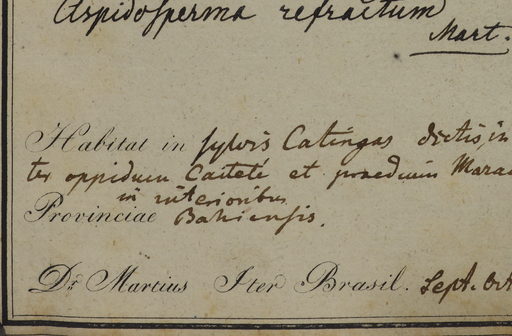 Aspidosperma refractum
Mart.
Habitat in sylvis Catingas dictis, in
ter oppidum Caiteté et praedium Marac
in interioribus
Provinciae Bahiensis.
Dr. Martius Iter Brasil. Sept. Oct